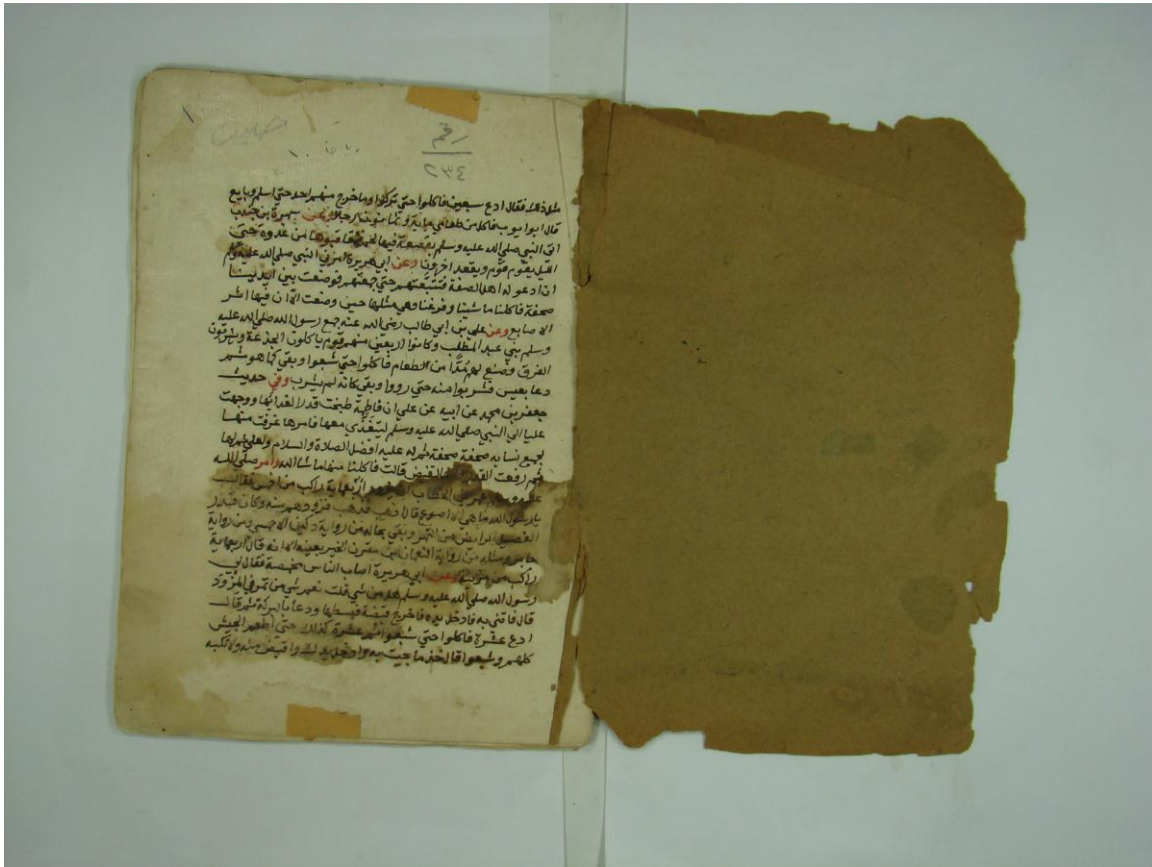 ١
رقم
٢٣٤
مثل ذلك فقال ادع سبعين فاكلوا حتى تركوا وما خرج منهم احد حتى اسلم وبايع
قال ابو ايوب فاكل من طعامي مايه وثمانون رجلا وعن سمرة بن جندب
اتى النبي صلى الله عليه وسلم بقصعة فيها لحم فتعاقبوها من غدوة حتى
الليل يقوم قوم ويقعد اخرون وعن ابي هريرة امرني النبي صلى الله عليه وسلم
ان ادعو له اهل الصفة فتتبعتهم حتى جمعتهم فوضعت بين ايدينا
صحفة فاكلنا ما شينا وفرغنا وهي مثلها حين وضعت الا ان فيها اثر
الاصابع وعن علي بن ابي طالب رضي الله عنه جمع رسول الله صلى الله عليه
وسلم بني عبد المطلب وكانوا اربعين منهم قوم ياكلون الجذعة ويشربون
الفرق فصنع لهم مدا من الطعام فاكلوا حتى شبعوا وبقي كما هو ثم
دعا بعس فشربوا منه حتى رووا وبقي كانه لم يشرب وفي حديث
جعفر بن محمد عن ابيه عن علي ان فاطمة طبخت قدرا لغدايها ووجهت
عليا الى النبي صلى الله عليه وسلم ليتغدى معها فامرها غرفت منها
لجميع نسايه صحفة صحفة ثم له عليه افضل الصلاة والسلام ولعلي ثم لها
ثم رفعت القدر وانها لتفيض قالت فاكلنا منها ما شا الله وامر صلى الله
عليه وسلم عمر بن الخطاب ان يزود اربعماية راكب من احمس فقال
يا رسول الله ما هي الا اصوع قال اذهب فذهب فزودهم منه وكان قدر
الفصيل الرابض من التمر وبقي بحاله من رواية دكين الاحمسي ومن رواية
جابر ومثله من رواية النعمان بن مقرن الخبر بعينه الا انه قال اربعماية
راكب من مزينة وعن ابي هريرة اصاب الناس مخمصة فقال لي
رسول الله صلى الله عليه وسلم هل من شي قلت نعم شي من تمر في المزود
قال فاتني به فادخل يده فاخرج قبضة فبسطها ودعا بالبركة ثم قال
ادع عشرة فاكلوا حتى شبعوا ثم عشرة كذلك حتى اطعم الجيش
كلهم وشبعوا قال خذ ما جيت به وادخل يدك واقبض منه ولا تكبه